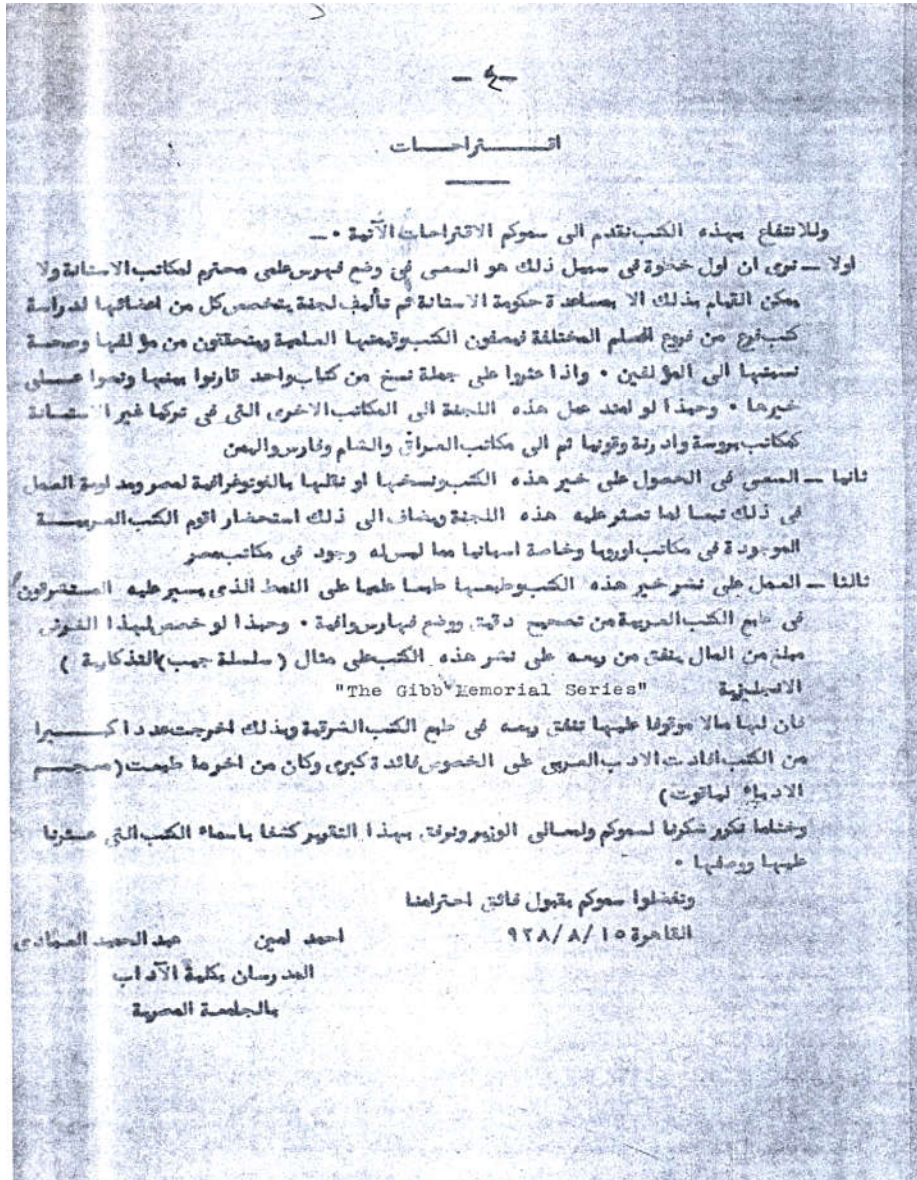 — ٤ —
اقـــتراحـــات
وللانتفاع بهذه الكتب نقدم الى سموكم الاقتراحات الآتية ٠ ــ
اولا ــ نرى ان اول خطوة فى سبيل ذلك هو السعى فى وضع فهرس علمى محترم لمكاتب الاستانة ولا
يمكن القيام بذلك الا بمساعدة حكومة الاستانة ثم تأليف لجنة يتخصص كل من اعضائها لدراسة
كتب فرع من فروع العلم المختلفة فيصفون الكتب وقيمتها العلمية ويتحققون من مؤلفها وصحة
نسبتها الى المؤلفين ٠ واذا عثروا على جملة نسخ من كتاب واحد قارنوا بينها ونصوا عـــلى
خيرها ٠ وحبذا لو امتد عمل هذه اللجنة الى المكاتب الاخرى التى فى تركيا غير الاستــانة
كمكاتب بروسة وادرنة وقونيا ثم الى مكاتب العراق والشام وفارس واليمن
ثانيا ــ السعى فى الحصول على خير هذه الكتب ونسخها او نقلها بالفوتوغرافية لمصر ومداومة العمل
فى ذلك تبعا لما تعثر عليه هذه اللجنة ويضاف الى ذلك استحضار اقوم الكتب العربيـــة
الموجودة فى مكاتب اوروبا وخاصة اسبانيا مما ليس له وجود فى مكاتب مصر
ثالثا ــ العمل على نشر خير هذه الكتب وطبعها طبعا علميا على النمط الذى يسير عليه المستشرقون
فى طبع الكتب العربية من تصحيح دقيق ووضع فهارس وافية ٠ وحبذا لو خصص لهذا الغرض
مبلغ من المال ينفق من ريعه على نشر هذه الكتب على مثال ( سلسلة جيب التذكارية )
الانجليزية "The Gibb Memorial Series"
فان لها مالا موقوفا عليها تنفق ريعه فى طبع الكتب الشرقية وبذلك اخرجت عددا كـــبيرا
من الكتب افادت الادب العربى على الخصوص فائدة كبرى وكان من اخرها طبعت (معجـــم
الادباء لياقوت)
وختاما نكرر شكرنا لسموكم ولمعالى الوزير ونرفق بهذا التقرير كشفا باسماء الكتب التى عــثرنا
عليها ووصفها ٠
وتفضلوا سموكم بقبول فائق احترامنا
القاهرة ١٥/٨/٩٢٨ احمد امين عبد الحميد العبادى
المدرسان بكلية الآداب
بالجامعة المصرية